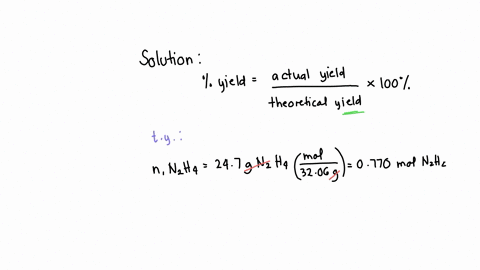 Solution:
% yield = actual yield / theoretical yield × 100%
t.y.:
n, N₂H₄ = 24.7 g N₂H₄ (mol / 32.06 g) = 0.770 mol N₂H₄